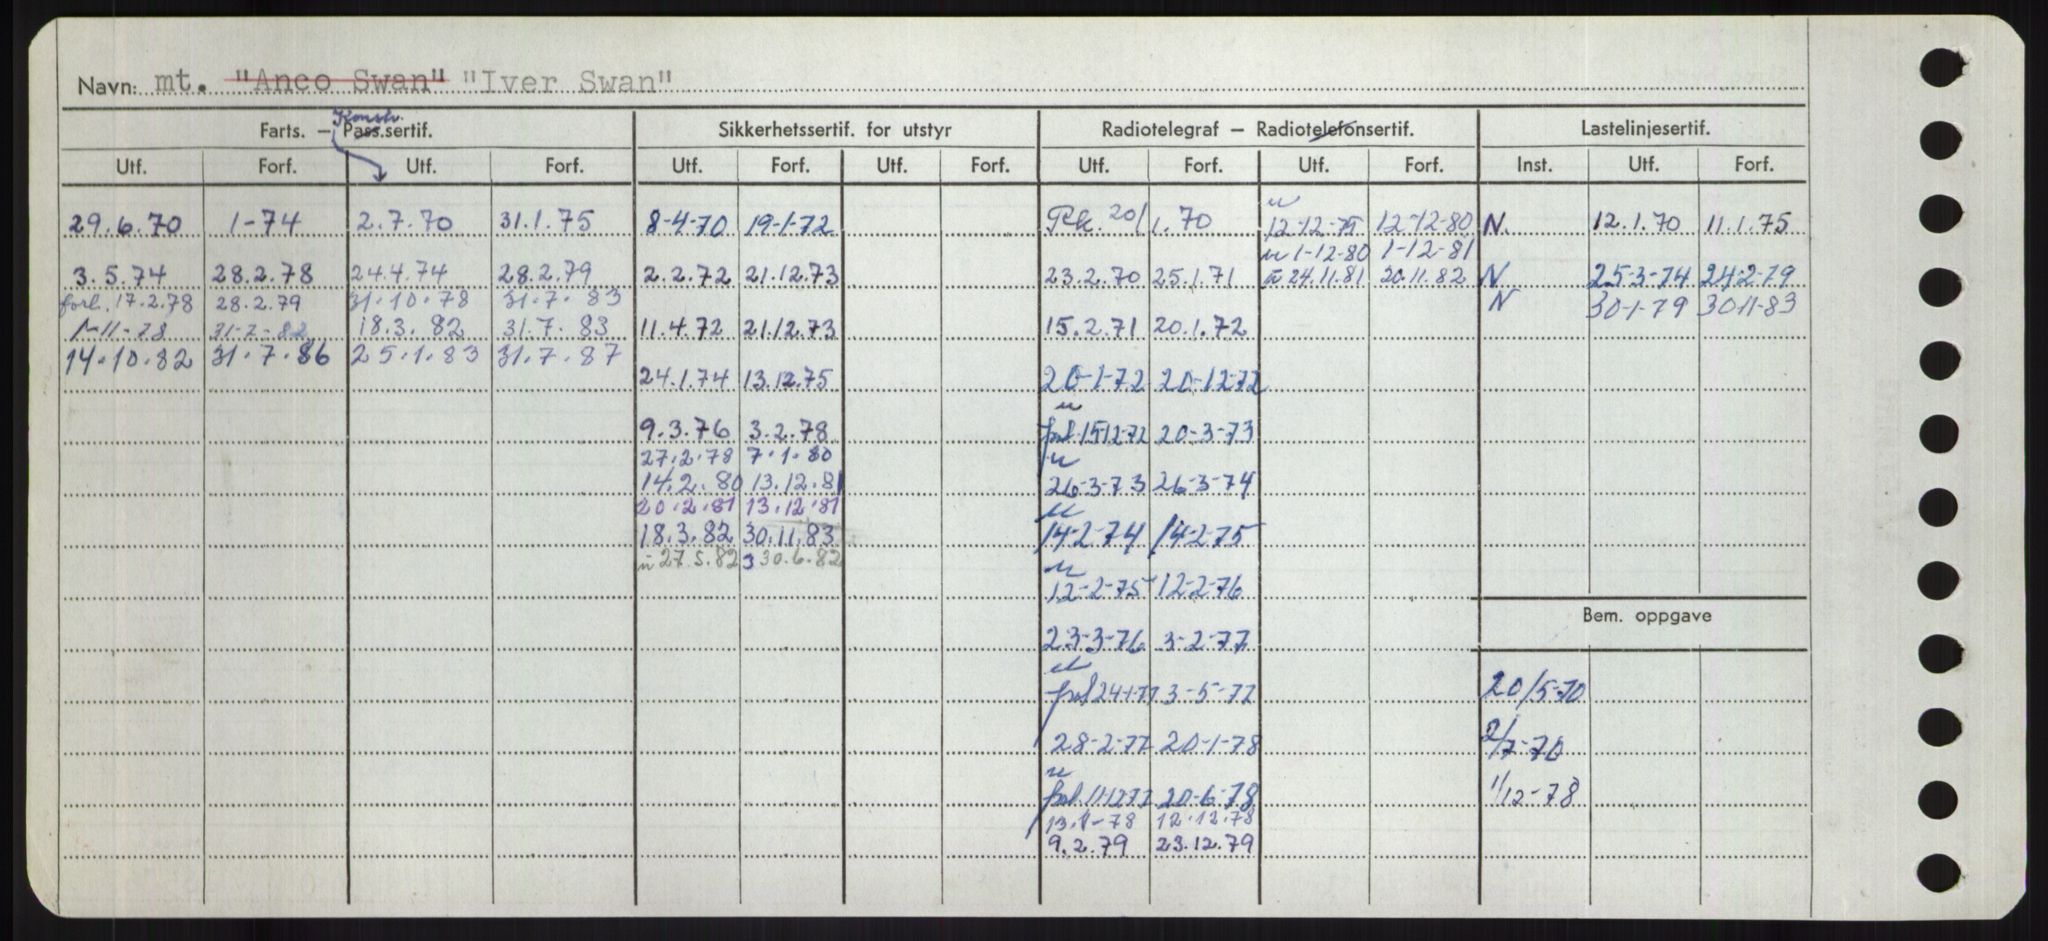 Navn: mt. "Anco Swan" "Iver Swan"
Farts. – Pass.sertif. Konstr.
Sikkerhetssertif. for utstyr
Radiotelegraf – Radiotelefonsertif.
Lastelinjesertif.
Utf. Forf. Utf. Forf. Utf. Forf. Utf. Forf. Utf. Forf. Utf. Forf. Inst. Utf. Forf.
29.6.70 1-74 2.7.70 31.1.75 8-4-70 19-1-72 20/1.70 u 12-12-75 12-12-80 N. 12.1.70 11.1.75
u 1-12-80 1-12-81
3.5.74 28.2.78 24.4.74 28.2.79 2.2.72 21.12.73 23.2.70 25.1.71 u 24.11.81 20.11.82 N 25-3-74 24-2-79
forl. 17.2.78 28.2.79 31.10.78 31.7.83 N 30-1-79 30-11-83
1-11-78 31-7-82 18.3.82 31.7.83 11.4.72 21.12.73 15.2.71 20.1.72
14.10.82 31.7.86 25.1.83 31.7.87
24.1.74 13.12.75 20-1-72 20-12-72
u
9.3.76 3.2.78 forl. 15-12-72 20-3-73
27.2.78 7.1.80 u
14.2.80 13.12.81 26-3-73 26-3-74
20.2.81 13.12.81 u
18.3.82 30.11.83 14-2-74 14-2-75
u 27.5.82 3 30.6.82 u
12-2-75 12-2-76
Bem. oppgave
23-3-76 3-2-77
u
forl 24-1-77 3-5-77 20/5-70
28-2-77 20-1-78 2/7-70
u
forl. 11-12-77 20-6-78 1/12-78
12.12.78
9.2.79 23.12.79